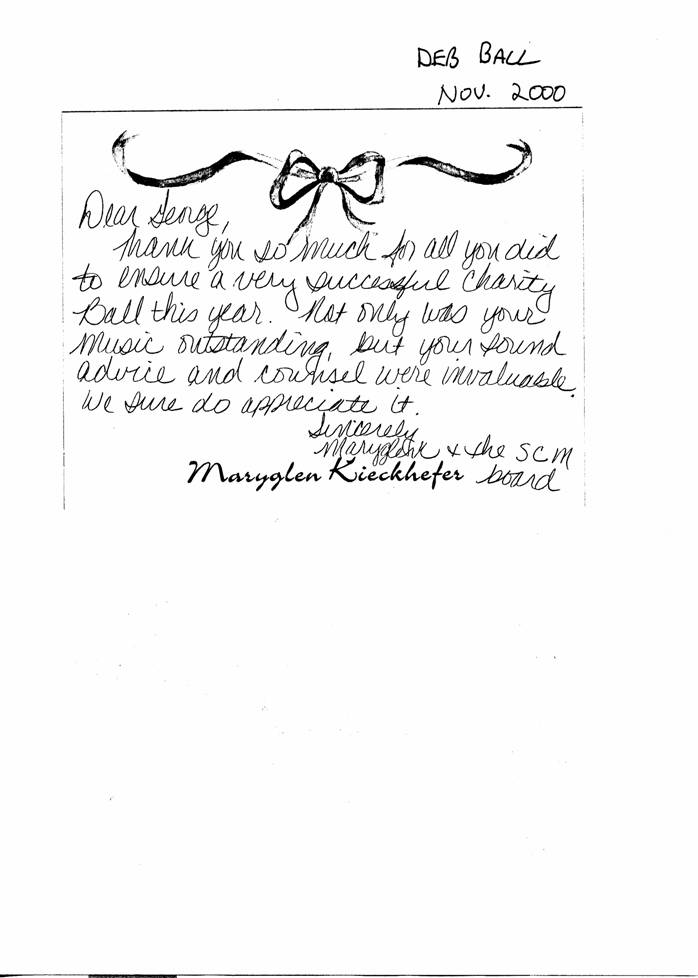 DEB BALL
NOV. 2000
Dear George,
Thank you so much for all you did
to ensure a very successful Charity
Ball this year. Not only was your
music outstanding, but your sound
advice and counsel were invaluable.
We sure do appreciate it.
Sincerely
Maryglenk & the SCM
Maryglen Kieckhefer board